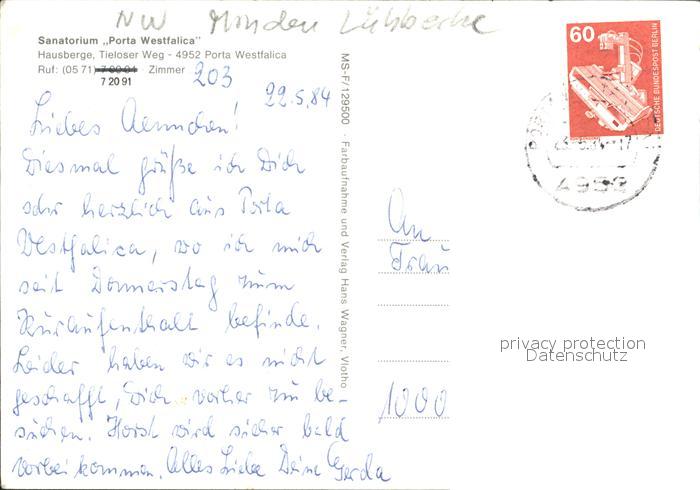 NW Minden Lübbecke
Sanatorium „Porta Westfalica"
Hausberge, Tieloser Weg - 4952 Porta Westfalica
Ruf: (05 71) 7 20 91 · Zimmer 203
22.5.84
Liebes Aennchen!
Diesmal grüße ich Dich
sehr herzlich aus Porta
Westfalica, wo ich mich
seit Donnerstag zum
Kuraufenthalt befinde.
Leider haben wir es nicht
geschafft, Dich vorher zu be-
suchen. Horst wird sicher bald
vorbei kommen. Alles Liebe Deine Gerda
MS-F/129500 · Farbaufnahme und Verlag Hans Wagner, Vlotho
60
DEUTSCHE BUNDESPOST BERLIN
4952
An
Frau
privacy protection
Datenschutz
1000